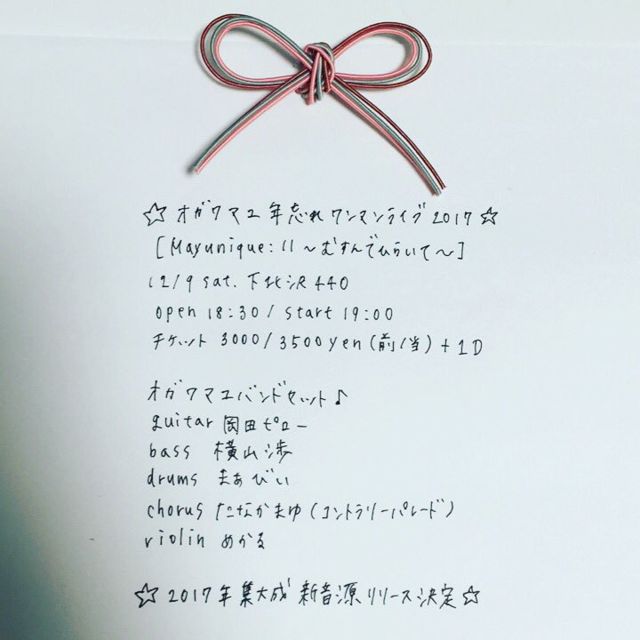 ☆オガワマユ年忘れワンマンライブ2017☆
[Mayunique:11〜むすんでひらいて〜]
12/9 sat. 下北沢440
open 18:30 / start 19:00
チケット 3000/3500yen(前/当)+1D
オガワマユバンドセット♪
guitar 岡田ピロー
bass 横山渉
drums まぁびい
chorus たなかまゆ(コントラリーパレード)
violin めかる
☆2017年集大成 新音源リリース決定☆